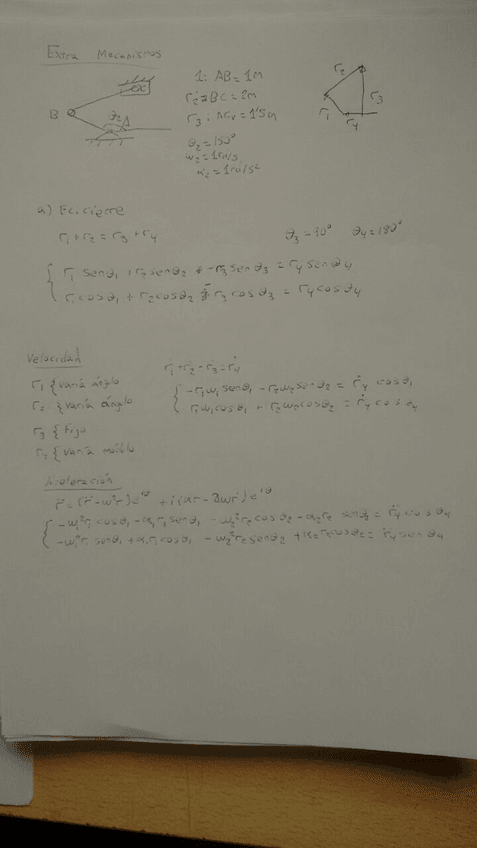 Extra Mecanismos
1: AB = 1m
r2 = BC = 2m
r3 : ACy = 1'5m
θ2 = 150°
ω2 = 1rad/s
α2 = 1rad/s²
B
A
r2
r3
r1
r4
a) Ec. cierre
r1 + r2 = r3 + r4
θ3 = 90° θ4 = 180°
r1 senθ1 + r2 senθ2 - r3 senθ3 = r4 senθ4
r1 cosθ1 + r2 cosθ2 - r3 cosθ3 = r4 cosθ4
Velocidad
ṙ1 + ṙ2 - ṙ3 = ṙ4
r1 { varía ángulo
r2 { varía ángulo
r3 { fijo
r4 { varía módulo
-r1ω1senθ1 - r2ω2senθ2 = ṙ4 cosθ4
r1ω1cosθ1 + r2ω2cosθ2 = ṙ4 cosθ4
Aceleración
r̈ = (r̈ - ω²r)e^iθ + i(αr - 2ωṙ)e^iθ
-ω1²r1 cosθ1 - α1r1senθ1 - ω2²r2 cosθ2 - α2r2 senθ2 = r̈4 cosθ4
-ω1²r1 senθ1 + α1r1cosθ1 - ω2²r2senθ2 + α2r2cosθ2 = r̈4 senθ4